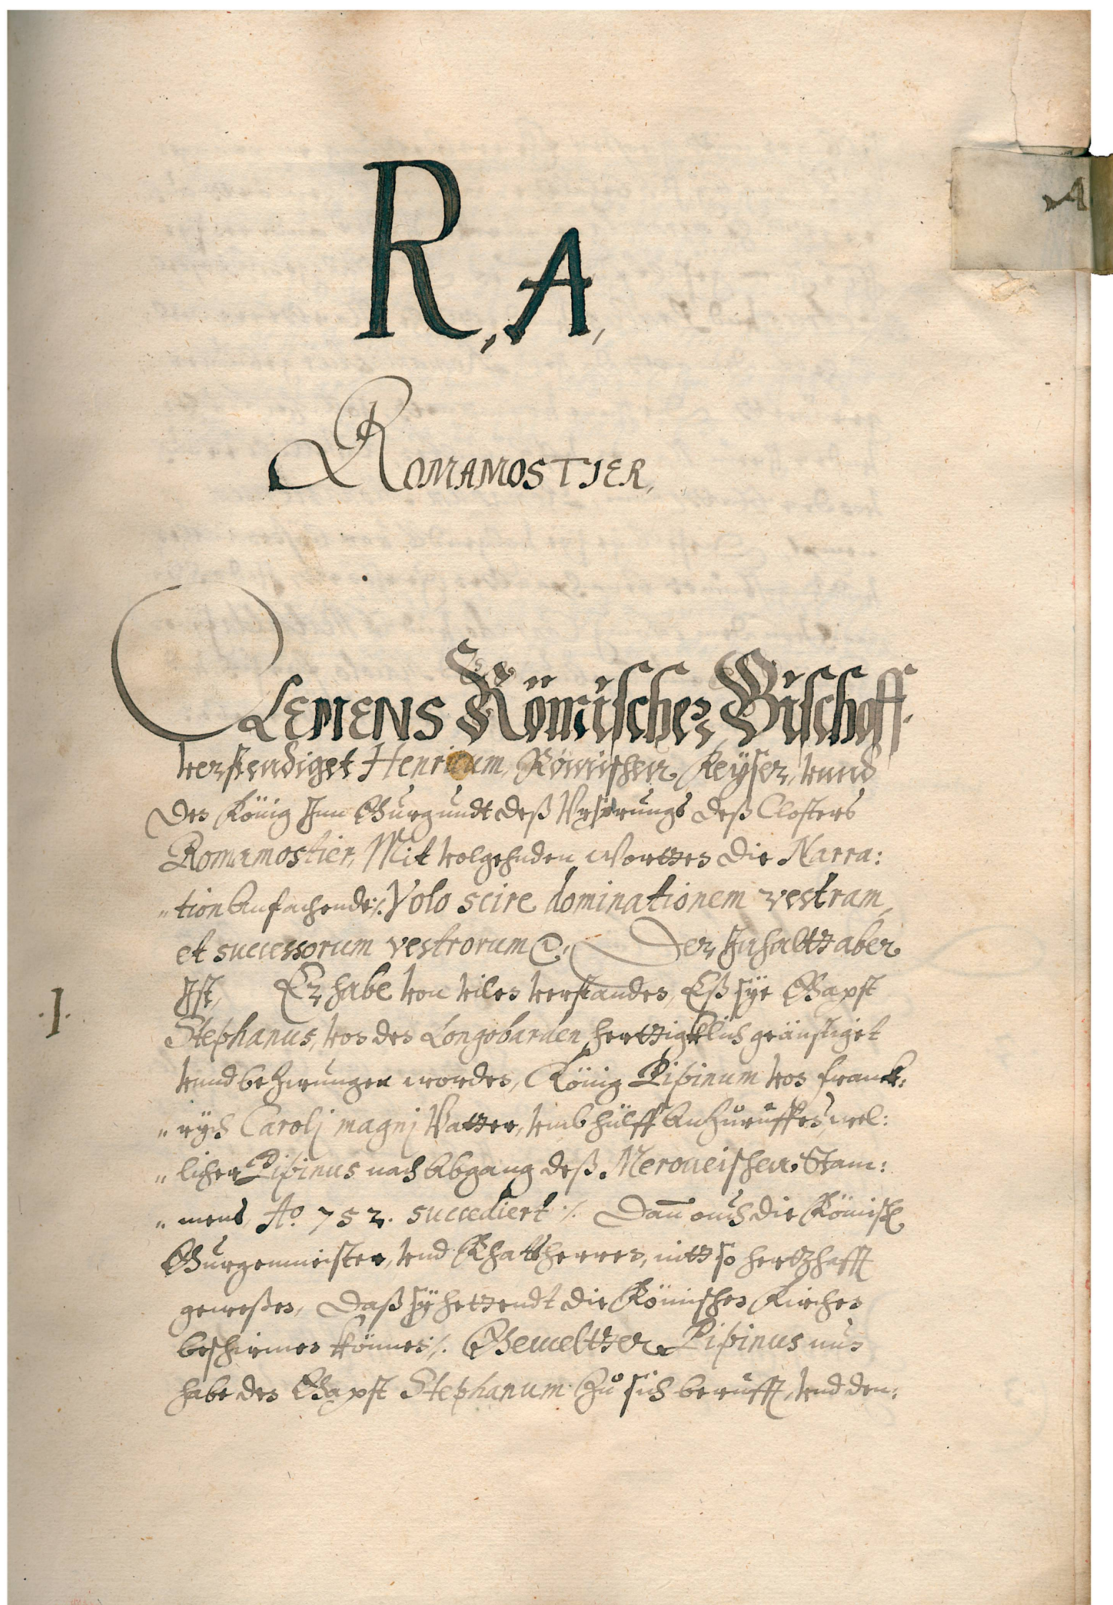 A
R, A,
ROMAMOSTIER,
CLEMENS Römischer, Bischoff.
verstendiget Henricum, Römischen Keÿser, vnnd
den König Inn Burgundt deß Vrsprungs deß Closters
Romamostier, Mit volgenden wortten die Narra:
„tion Anfachende ./. Volo scire dominationem vestram,
et successorum vestrorum &c. Der Inhallt aber
Ist, Er habe von vilen verstanden, Eß sÿe Bapst
.1.
Stephanus, von den Longobarden hertzigklich geänstiget
vnnd bezwungen worden, König Pipinum von Franck:
„rÿch Carolj magnj Vatter, vmb hülff Anzuruffen, wel:
„licher Pipinus nach Abgang deß Meroueischen Stam:
„mens Aº 752. succediert ./. Dañ ouch die Römisch
Burgermeister, vnd Rhattherren, nitt so hertzhafft
geweßen, Daß sÿ hettendt die Römischen Kirchen
beschirmen können ./. Gemeltter Pipinus nun
habe den Bapst Stephanum zu sich berufft, vnd den: